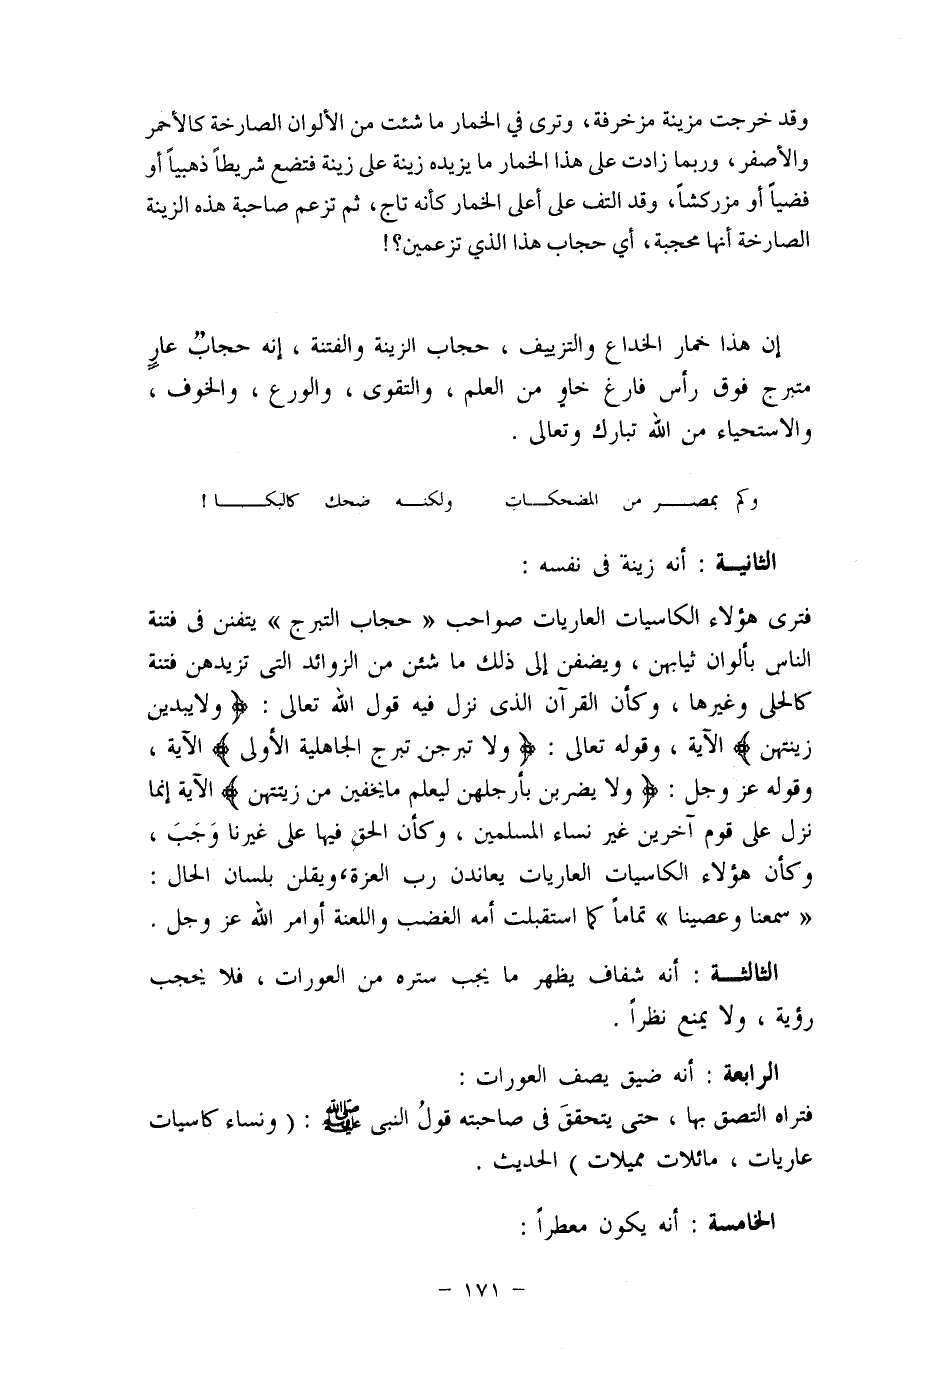 وقد خرجت مزينة مزخرفة، وترى في الخمار ما شئت من الألوان الصارخة كالأحمر
والأصفر، وربما زادت على هذا الخمار ما يزيده زينة على زينة فتضع شريطاً ذهبياً أو
فضياً أو مزركشاً، وقد التف على أعلى الخمار كأنه تاج، ثم تزعم صاحبة هذه الزينة
الصارخة أنها محجبة، أي حجاب هذا الذي تزعمين؟!
إن هذا خمار الخداع والتزييف ، حجاب الزينة والفتنة ، إنه حجابٌ عارٍ
متبرج فوق رأس فارغ خاوٍ من العلم ، والتقوى ، والورع ، والخوف ،
والاستحياء من الله تبارك وتعالى .
وكم بمصـــر من المضحكـات ولكنـه ضحك كالبكــا !
الثانيـة : أنه زينة فى نفسه :
فترى هؤلاء الكاسيات العاريات صواحب « حجاب التبرج » يتفنن فى فتنة
الناس بألوان ثيابهن ، ويضفن إلى ذلك ما شئن من الزوائد التى تزيدهن فتنة
كالحلى وغيرها ، وكأن القرآن الذى نزل فيه قول الله تعالى : ﴿ ولايبدين
زينتهن ﴾ الآية ، وقوله تعالى : ﴿ ولا تبرجن تبرج الجاهلية الأولى ﴾ الآية ،
وقوله عز وجل : ﴿ ولا يضربن بأرجلهن ليعلم مايخفين من زينتهن ﴾ الآية إنما
نزل على قوم آخرين غير نساء المسلمين ، وكأن الحق فيها على غيرنا وَجَبَ ،
وكأن هؤلاء الكاسيات العاريات يعاندن رب العزة، ويقلن بلسان الحال :
« سمعنا وعصينا » تماماً كما استقبلت أمه الغضب واللعنة أوامر الله عز وجل .
الثالثـة : أنه شفاف يظهر ما يجب ستره من العورات ، فلا يحجب
رؤية ، ولا يمنع نظراً .
الرابعة : أنه ضيق يصف العورات :
فتراه التصق بها ، حتى يتحققَ فى صاحبته قولُ النبى ﷺ : ( ونساء كاسيات
عاريات ، مائلات مميلات ) الحديث .
الخامسة : أنه يكون معطراً :
- ١٧١ -